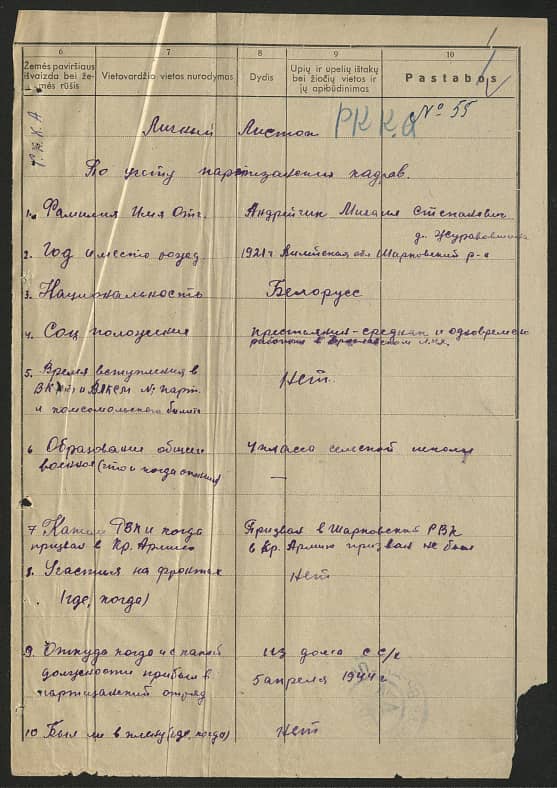 6
7
8
9
10
Žemės paviršiaus
išvaizda bei že-
mės rūšis
Vietovardžio vietos nurodymas
Dydis
Upių ir upelių ištakų
bei žiočių vietos ir
jų apibūdinimas
Pastabos
Р.К.К.А
Личный Листок РККА № 55
По учету партизанских кадров.
1. Фамилия Имя От. Андрейчик Михаил Степанович
2. Год и место рожд 1921 г Шарковский р-н
д.
3. Национальность Белорусс
4. Соц положения крестьянин-средняк и одновремено
работал в
5. Время вступления в
ВКП(б) и ВЛКСМ № парт.
и комсомольского билет
Нет.
6 Образование общее 4 класса сельской школы
военное (что и когда окончил) —
7 Каким РВК и когда Призван в Шарковский РВК
призван в Кр. Армию в Кр. Армию призван не был
8. Участия на фронтах Нет
(где, когда)
9. Откуда когда и с какой из дома с с/х
должности прибыл в 5 апреля 1944 г
партизанский отряд
10 Был ли в плену (где, когда) Нет